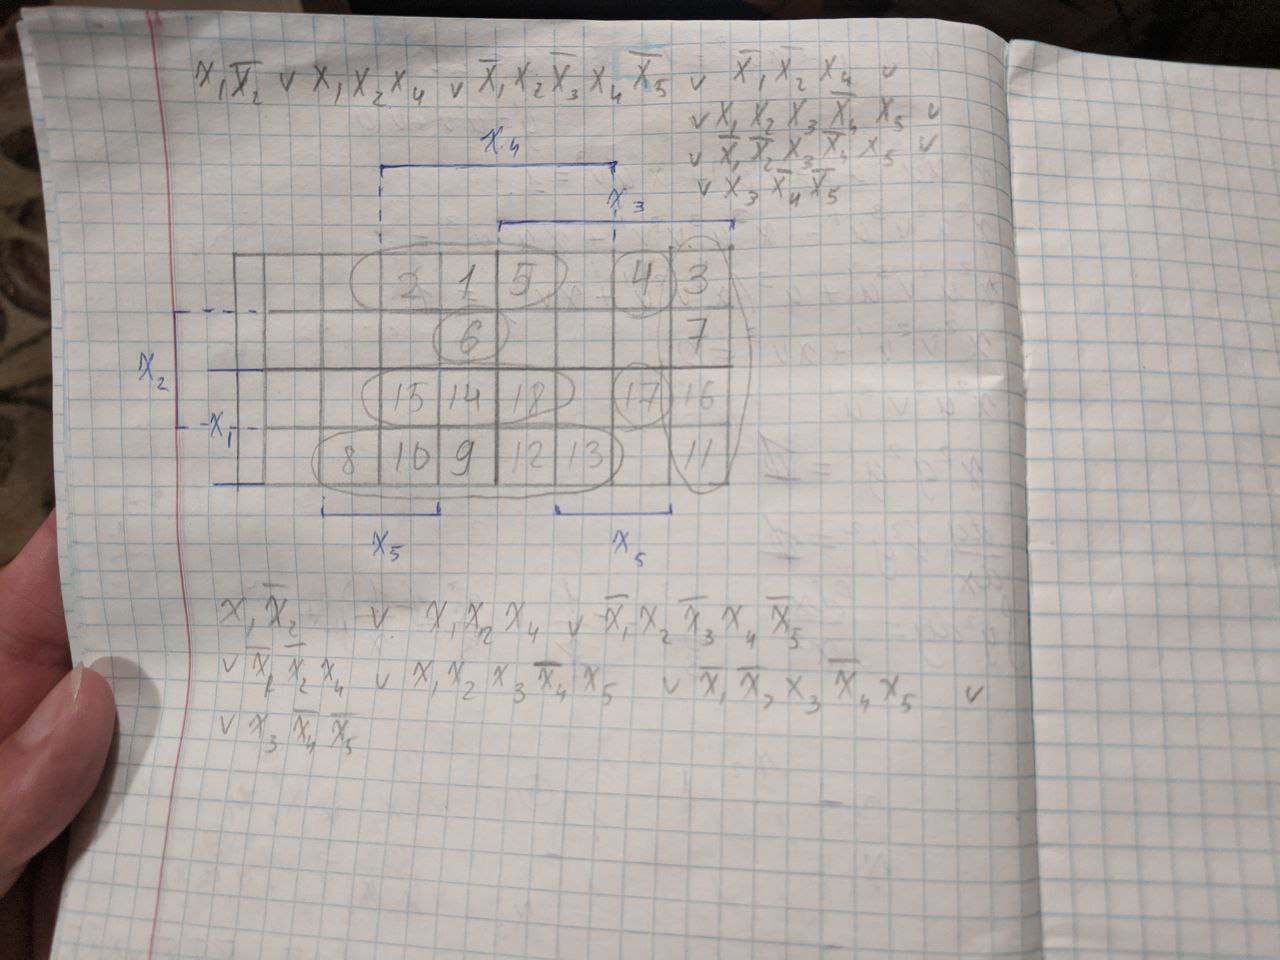 x₁x̅₂ ∨ x₁x₂x₄ ∨ x̅₁x₂x̅₃x₄x̅₅ ∨ x̅₁x̅₂x₄ ∨
∨ x₁x₂x₃x̅₄x₅ ∨
∨ x̅₁x̅₂x₃x̅₄x₅ ∨
∨ x₃x̅₄x̅₅
x₄
x₃
2 1 5 4 3
6 7
x₂
15 14 18 17 16
x₁
8 10 9 12 13 11
x₅ x₅
x₁x̅₂ ∨ x₁x₂x₄ ∨ x̅₁x₂x̅₃x₄x̅₅
∨ x̅₁x̅₂x₄ ∨ x₁x₂x₃x̅₄x₅ ∨ x̅₁x̅₂x₃x̅₄x₅ ∨
∨ x₃x̅₄x̅₅